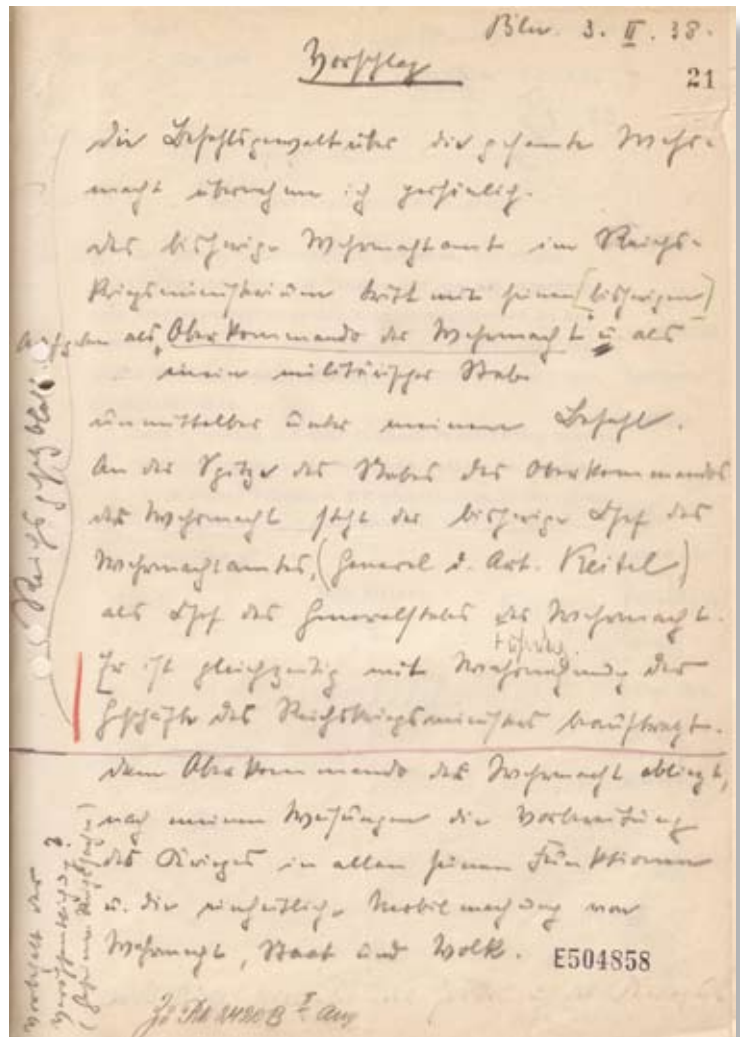 Bln. 3. II. 38.
Vorschlag
21
Die Befehlsgewalt über die gesamte Wehr-
macht übernehme ich persönlich.
Das bisherige Wehrmachtamt im Reichs-
kriegsministerium tritt mit seinen (bisherigen)
Aufgaben als Oberkommando der Wehrmacht u. als
mein militärischer Stab
unmittelbar unter meinen Befehl.
An der Spitze des Stabes des Oberkommandos
der Wehrmacht steht der bisherige Chef des
Wehrmachtamtes, (General d. Art. Keitel)
als Chef des Generalstabes der Wehrmacht.
Er ist gleichzeitig mit Wahrnehmung der
Geschäfte des Reichskriegsministers beauftragt.
Dem Oberkommando der Wehrmacht obliegt,
nach meinen Weisungen die Vorbereitung
des Krieges in allen seinen Funktionen
u. die einheitliche Mobilmachung von
Wehrmacht, Staat und Volk.
E504858
Reichsgesetzblatt
Vorbehalt der
Veröffentlichung